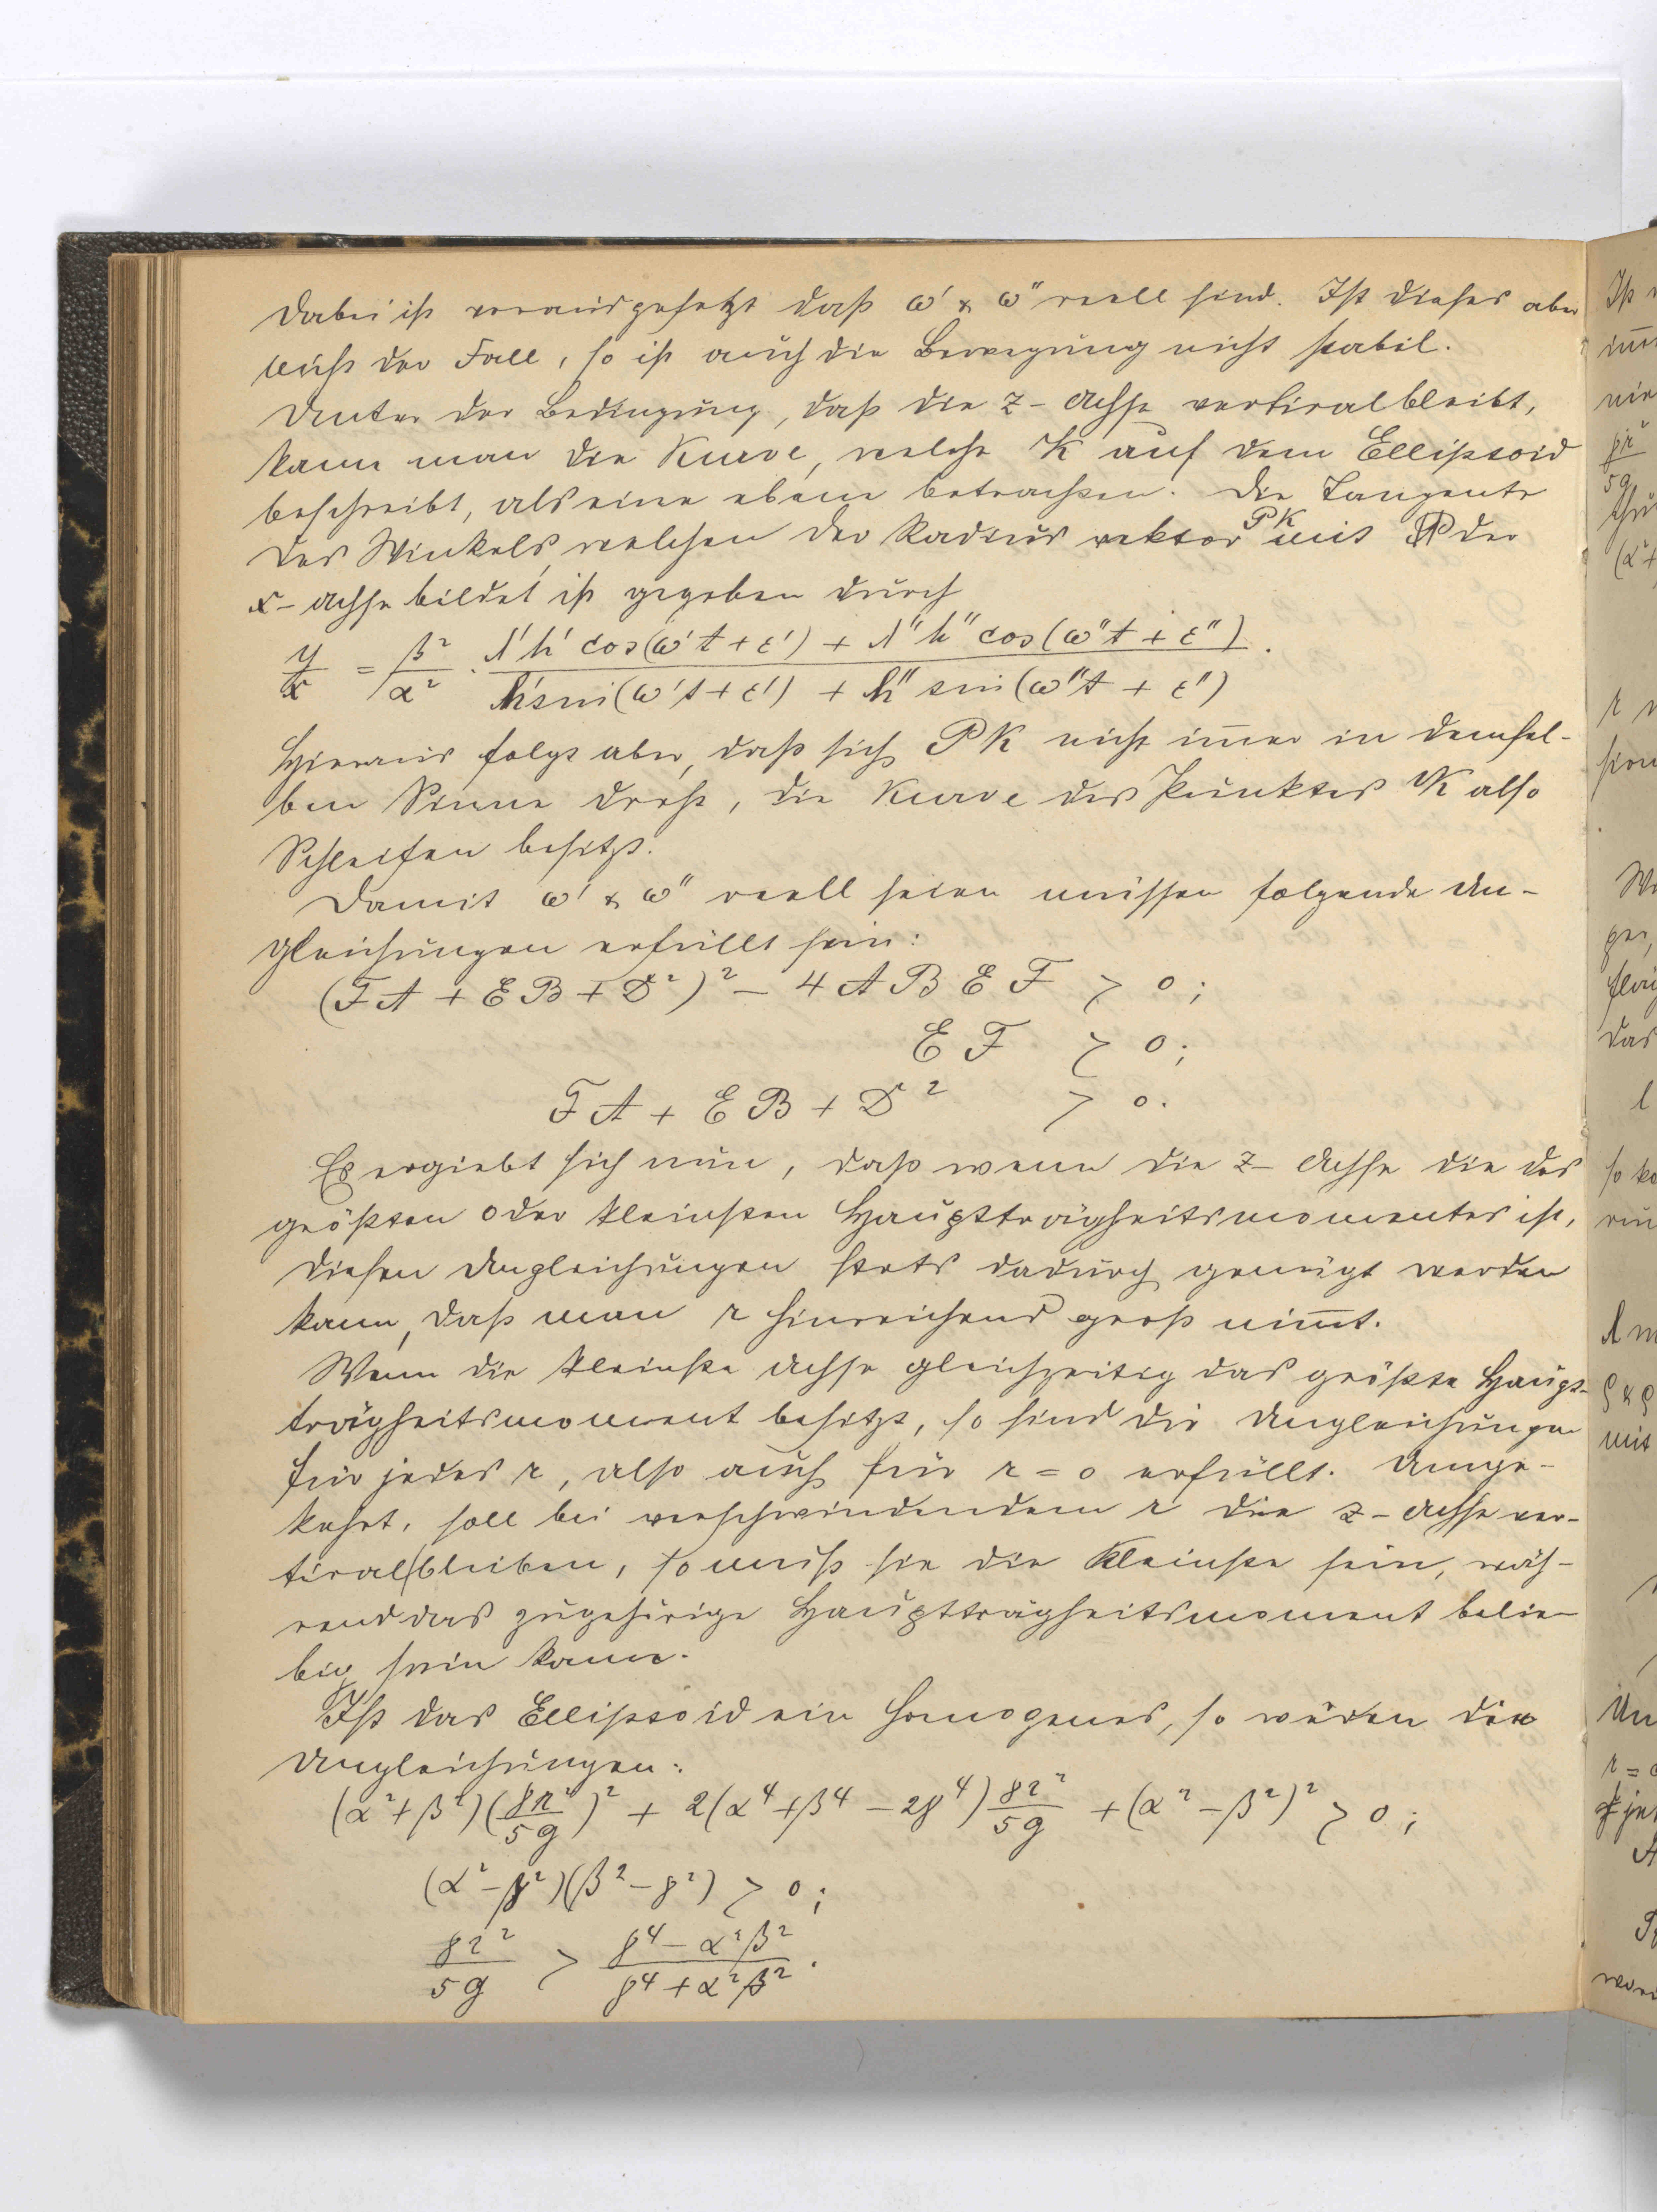 Dabei ist vorausgesetzt daß ω' & ω'' reell sind. Ist dieses aber
nicht der Fall, so ist auch die Bewegung nicht stabil.
Unter der Bedingung, daß die z-Achse vertical bleibt,
kann man die Kurve, welche K auf dem Ellipsoid
beschreibt, als eine ebene betrachten. Die Tangente
des Winkels, welchen der Radius vektor PK mit der
x-Achse bildet ist gegeben durch
y/x = β²/α² · (λ'h' cos(ω't + ε') + λ''h'' cos(ω''t + ε''))/(h' sin(ω't + ε') + h'' sin(ω''t + ε'')).
Hieraus folgt aber, daß sich PK nicht im̄er in demsel-
ben Sinne dreht, die Kurve des Punktes K also
Schleifen besitzt.
Damit ω' & ω'' reell seien müssen folgende Un-
gleichungen erfüllt sein:
(FA + EB + D²)² - 4ABEF > 0;
EF > 0;
FA + EB + D² > 0.
Es ergiebt sich nun, daß wenn die z-Achse die des
größten oder kleinsten Hauptträgheitsmomentes ist,
diesen Ungleichungen stets dadurch genügt werden
kann, daß man r hinreichend groß nim̄t.
Wenn die kleinste Achse gleichzeitig das größte Haupt-
trägheitsmoment besitzt, so sind die Ungleichungen
für jedes r, also auch für r = 0 erfüllt. Umge-
kehrt, soll bei verschwindendem r die z-Achse ver-
tical bleiben, so muß sie die Kleinste sein, wäh-
rend das zugehörige Hauptträgheitsmoment belie-
big sein kann.
Ist das Ellipsoid ein homogenes, so werden die
Ungleichungen:
(α² + β²)(γr²/5g)² + 2(α⁴ + β⁴ - 2γ⁴) γr²/5g + (α² - β²)² > 0;
(α² - γ²)(β² - γ²) > 0;
γr²/5g > (γ⁴ - α²β²)/(γ⁴ + α²β²).